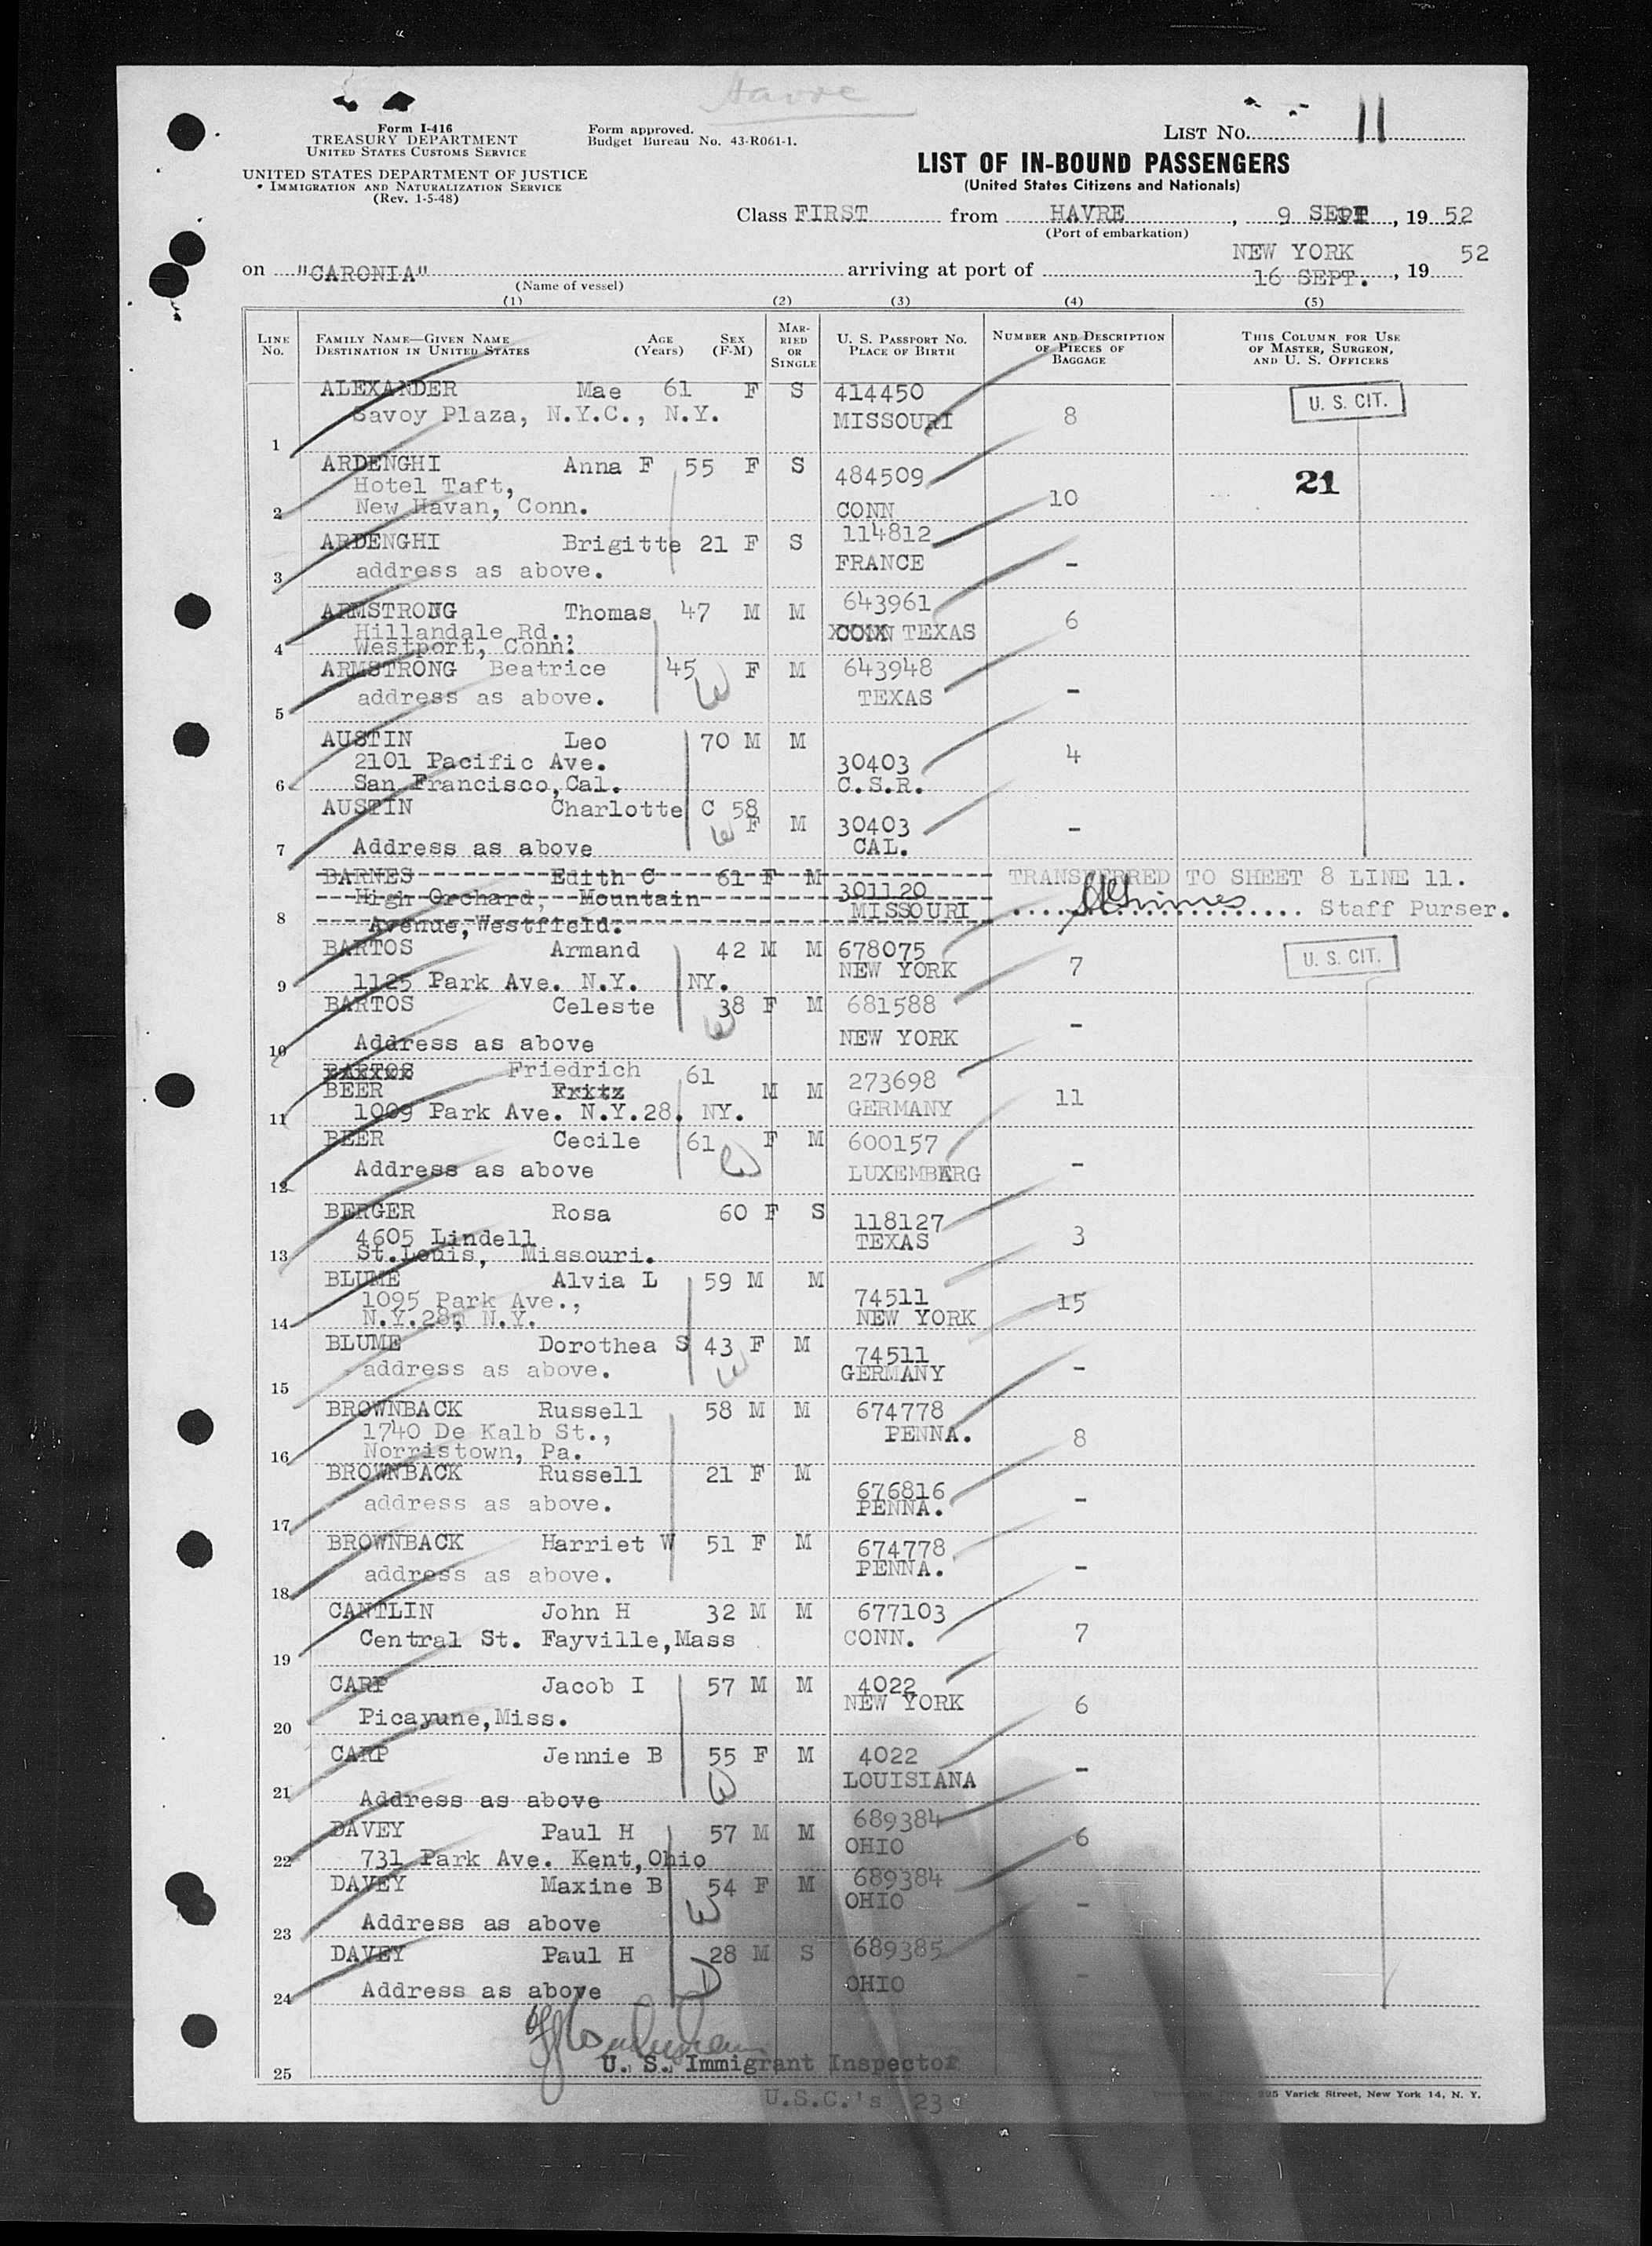 Havre
Form I-416
TREASURY DEPARTMENT
UNITED STATES CUSTOMS SERVICE
UNITED STATES DEPARTMENT OF JUSTICE
IMMIGRATION AND NATURALIZATION SERVICE
(Rev. 1-5-48)
Form approved.
Budget Bureau No. 43-R061-1.
LIST No. 11
LIST OF IN-BOUND PASSENGERS
(United States Citizens and Nationals)
Class FIRST from HAVRE, 9 SEPT, 19 52
(Port of embarkation)
NEW YORK 52
on "CARONIA" arriving at port of 16 SEPT., 19
(Name of vessel)
(1) (2) (3) (4) (5)
LINE No. FAMILY NAME—GIVEN NAME DESTINATION IN UNITED STATES AGE (Years) SEX (F-M) MARRIED OR SINGLE U. S. PASSPORT NO. PLACE OF BIRTH NUMBER AND DESCRIPTION OF PIECES OF BAGGAGE THIS COLUMN FOR USE OF MASTER, SURGEON, AND U. S. OFFICERS
ALEXANDER Mae 61 F S 414450 U. S. CIT.
Savoy Plaza, N.Y.C., N.Y. MISSOURI 8
1
ARDENGHI Anna F 55 F S 484509 21
Hotel Taft,
2 New Havan, Conn. CONN 10
ARDENGHI Brigitte 21 F S 114812
3 address as above. FRANCE -
ARMSTRONG Thomas 47 M M 643961 6
Hillandale Rd., TEXAS
4 Westport, Conn.
ARMSTRONG Beatrice 45 F M 643948
W
5 address as above. TEXAS -
AUSTIN Leo 70 M M
2101 Pacific Ave. 30403 4
6 San Francisco,Cal. C.S.R.
AUSTIN Charlotte C 58
W F M 30403 -
7 Address as above CAL.
BARNES Edith C 61 F M 301120 TRANSFERRED TO SHEET 8 LINE 11.
High Orchard, Mountain MISSOURI Staff Purser.
8 Avenue,Westfield.
BARTOS Armand 42 M M 678075 U. S. CIT.
9 1125 Park Ave. N.Y. NY. NEW YORK 7
BARTOS Celeste 38 F M 681588
W
10 Address as above NEW YORK -
BARTOS Friedrich 61
BEER Fritz M M 273698 11
11 1009 Park Ave. N.Y.28. NY. GERMANY
BEER Cecile 61 F M 600157
W
12 Address as above LUXEMBERG -
BERGER Rosa 60 F S 118127
4605 Lindell TEXAS 3
13 St.Louis, Missouri.
BLUME Alvia L 59 M M
1095 Park Ave., 74511 15
14 N.Y.28, N.Y. NEW YORK
BLUME Dorothea S 43 F M 74511
W
15 address as above. GERMANY -
BROWNBACK Russell 58 M M 674778
1740 De Kalb St., PENNA. 8
16 Norristown, Pa.
BROWNBACK Russell 21 F M 676816
17 address as above. PENNA. -
BROWNBACK Harriet W 51 F M 674778
18 address as above. PENNA. -
CANTLIN John H 32 M M 677103
19 Central St. Fayville,Mass CONN. 7
CARP Jacob I 57 M M 4022
20 Picayune,Miss. NEW YORK 6
CARP Jennie B 55 F M 4022
W
21 Address as above LOUISIANA -
DAVEY Paul H 57 M M 689384 6
22 731 Park Ave. Kent,Ohio OHIO
DAVEY Maxine B 54 F M 689384
W
23 Address as above OHIO -
DAVEY Paul H 28 M S 689385
D
24 Address as above OHIO -
25 U. S. Immigrant Inspector
U.S.C.'s 23
Varick Street, New York 14, N. Y.